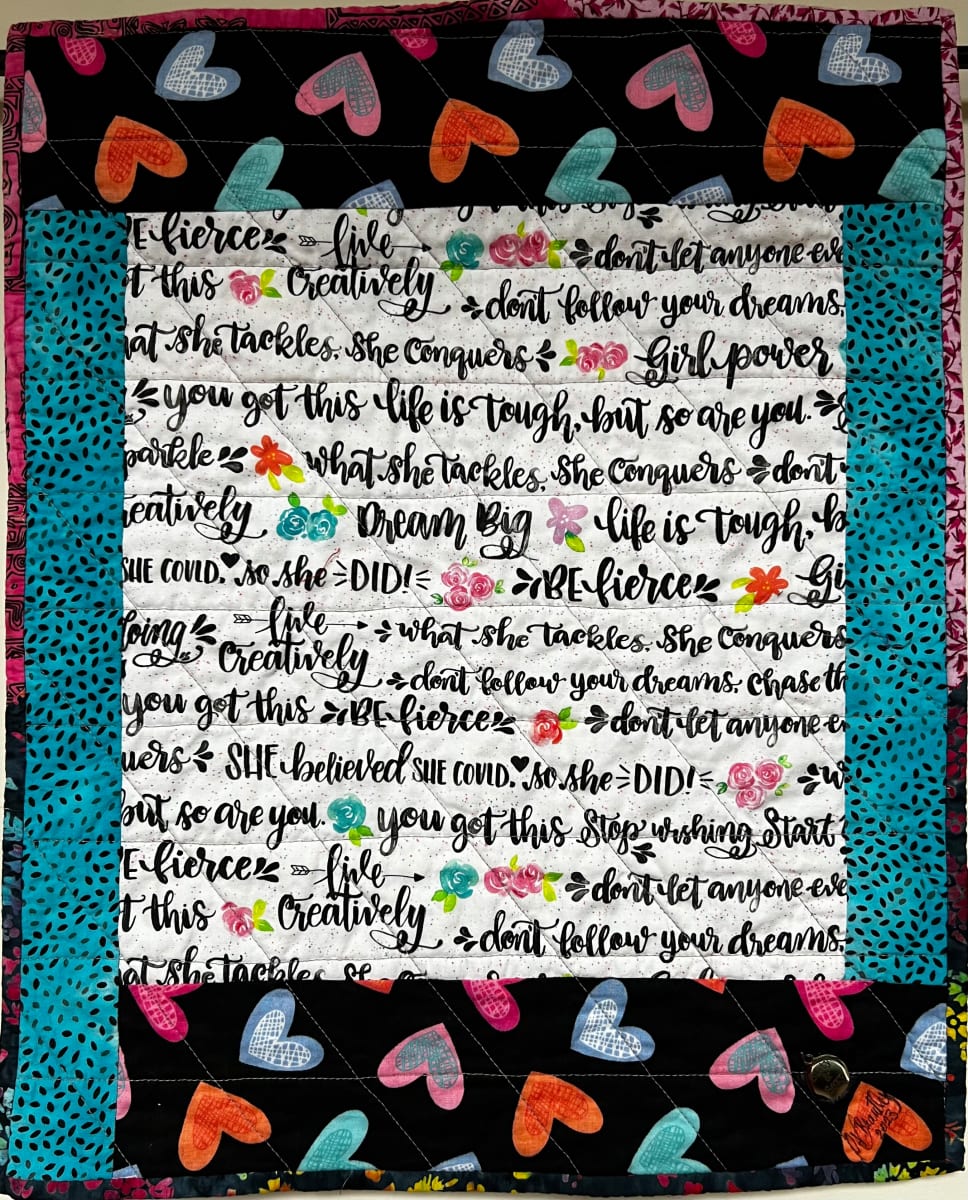 BE fierce live don't let anyone eve
t this Creatively don't follow your dreams,
hat she tackles, She Conquers Girl power
you got this life is tough, but so are you.
parkle what she tackles, She Conquers don't
reatively Dream Big life is tough, b
SHE COULD. so she DID! BE fierce Gi
oing live what she tackles, She Conquers
Creatively don't follow your dreams, chase th
you got this BE fierce don't let anyone e
uers SHE believed SHE COULD. so she DID! w
but so are you. you got this Stop wishing Start
E fierce live don't let anyone eve
t this Creatively don't follow your dreams,
at she tackles,
2023